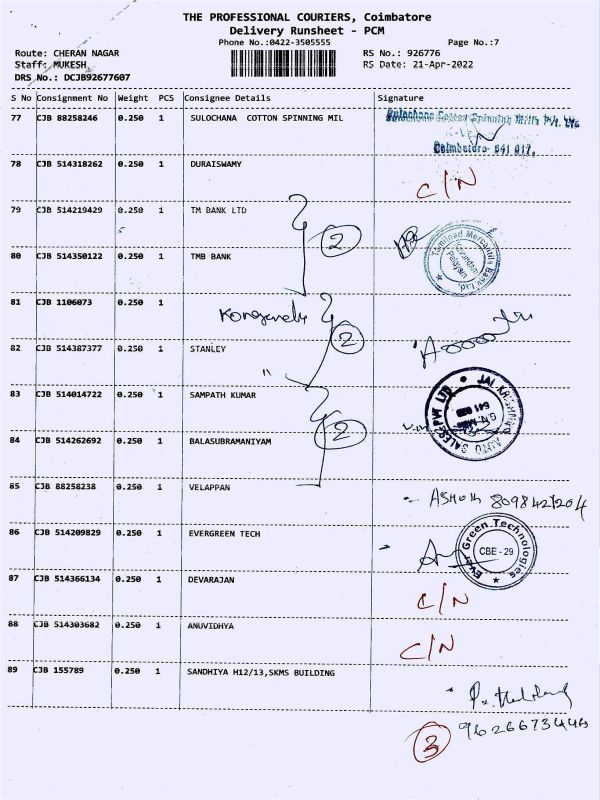 THE PROFESSIONAL COURIERS, Coimbatore
Delivery Runsheet - PCM
Phone No.:0422-3505555 Page No.:7
Route: CHERAN NAGAR RS No.: 926776
Staff: MUKESH RS Date: 21-Apr-2022
DRS No.: DCJB92677607
S No Consignment No Weight PCS Consignee Details Signature
77 CJB 88258246 0.250 1 SULOCHANA COTTON SPINNING MIL Sulochana Cotton Spinning Mills Pvt. Ltd
Coimbatore- 641 017.
78 CJB 514318262 0.250 1 DURAISWAMY C/N
79 CJB 514219429 0.250 1 TM BANK LTD
2
80 CJB 514350122 0.250 1 TMB BANK Tamilnad Mercantile Bank Ltd.
81 CJB 1106073 0.250 1
2
82 CJB 514387377 0.250 1 STANLEY
"
83 CJB 514014722 0.250 1 SAMPATH KUMAR JAI KRISHNA AUTO SALES PVT LTD
2
84 CJB 514262692 0.250 1 BALASUBRAMANIYAM
85 CJB 88258238 0.250 1 VELAPPAN
86 CJB 514209829 0.250 1 EVERGREEN TECH Ever Green Technologies CBE - 29
87 CJB 514366134 0.250 1 DEVARAJAN C/N
88 CJB 514303682 0.250 1 ANUVIDHYA C/N
89 CJB 155789 0.250 1 SANDHIYA H12/13,SKMS BUILDING
3